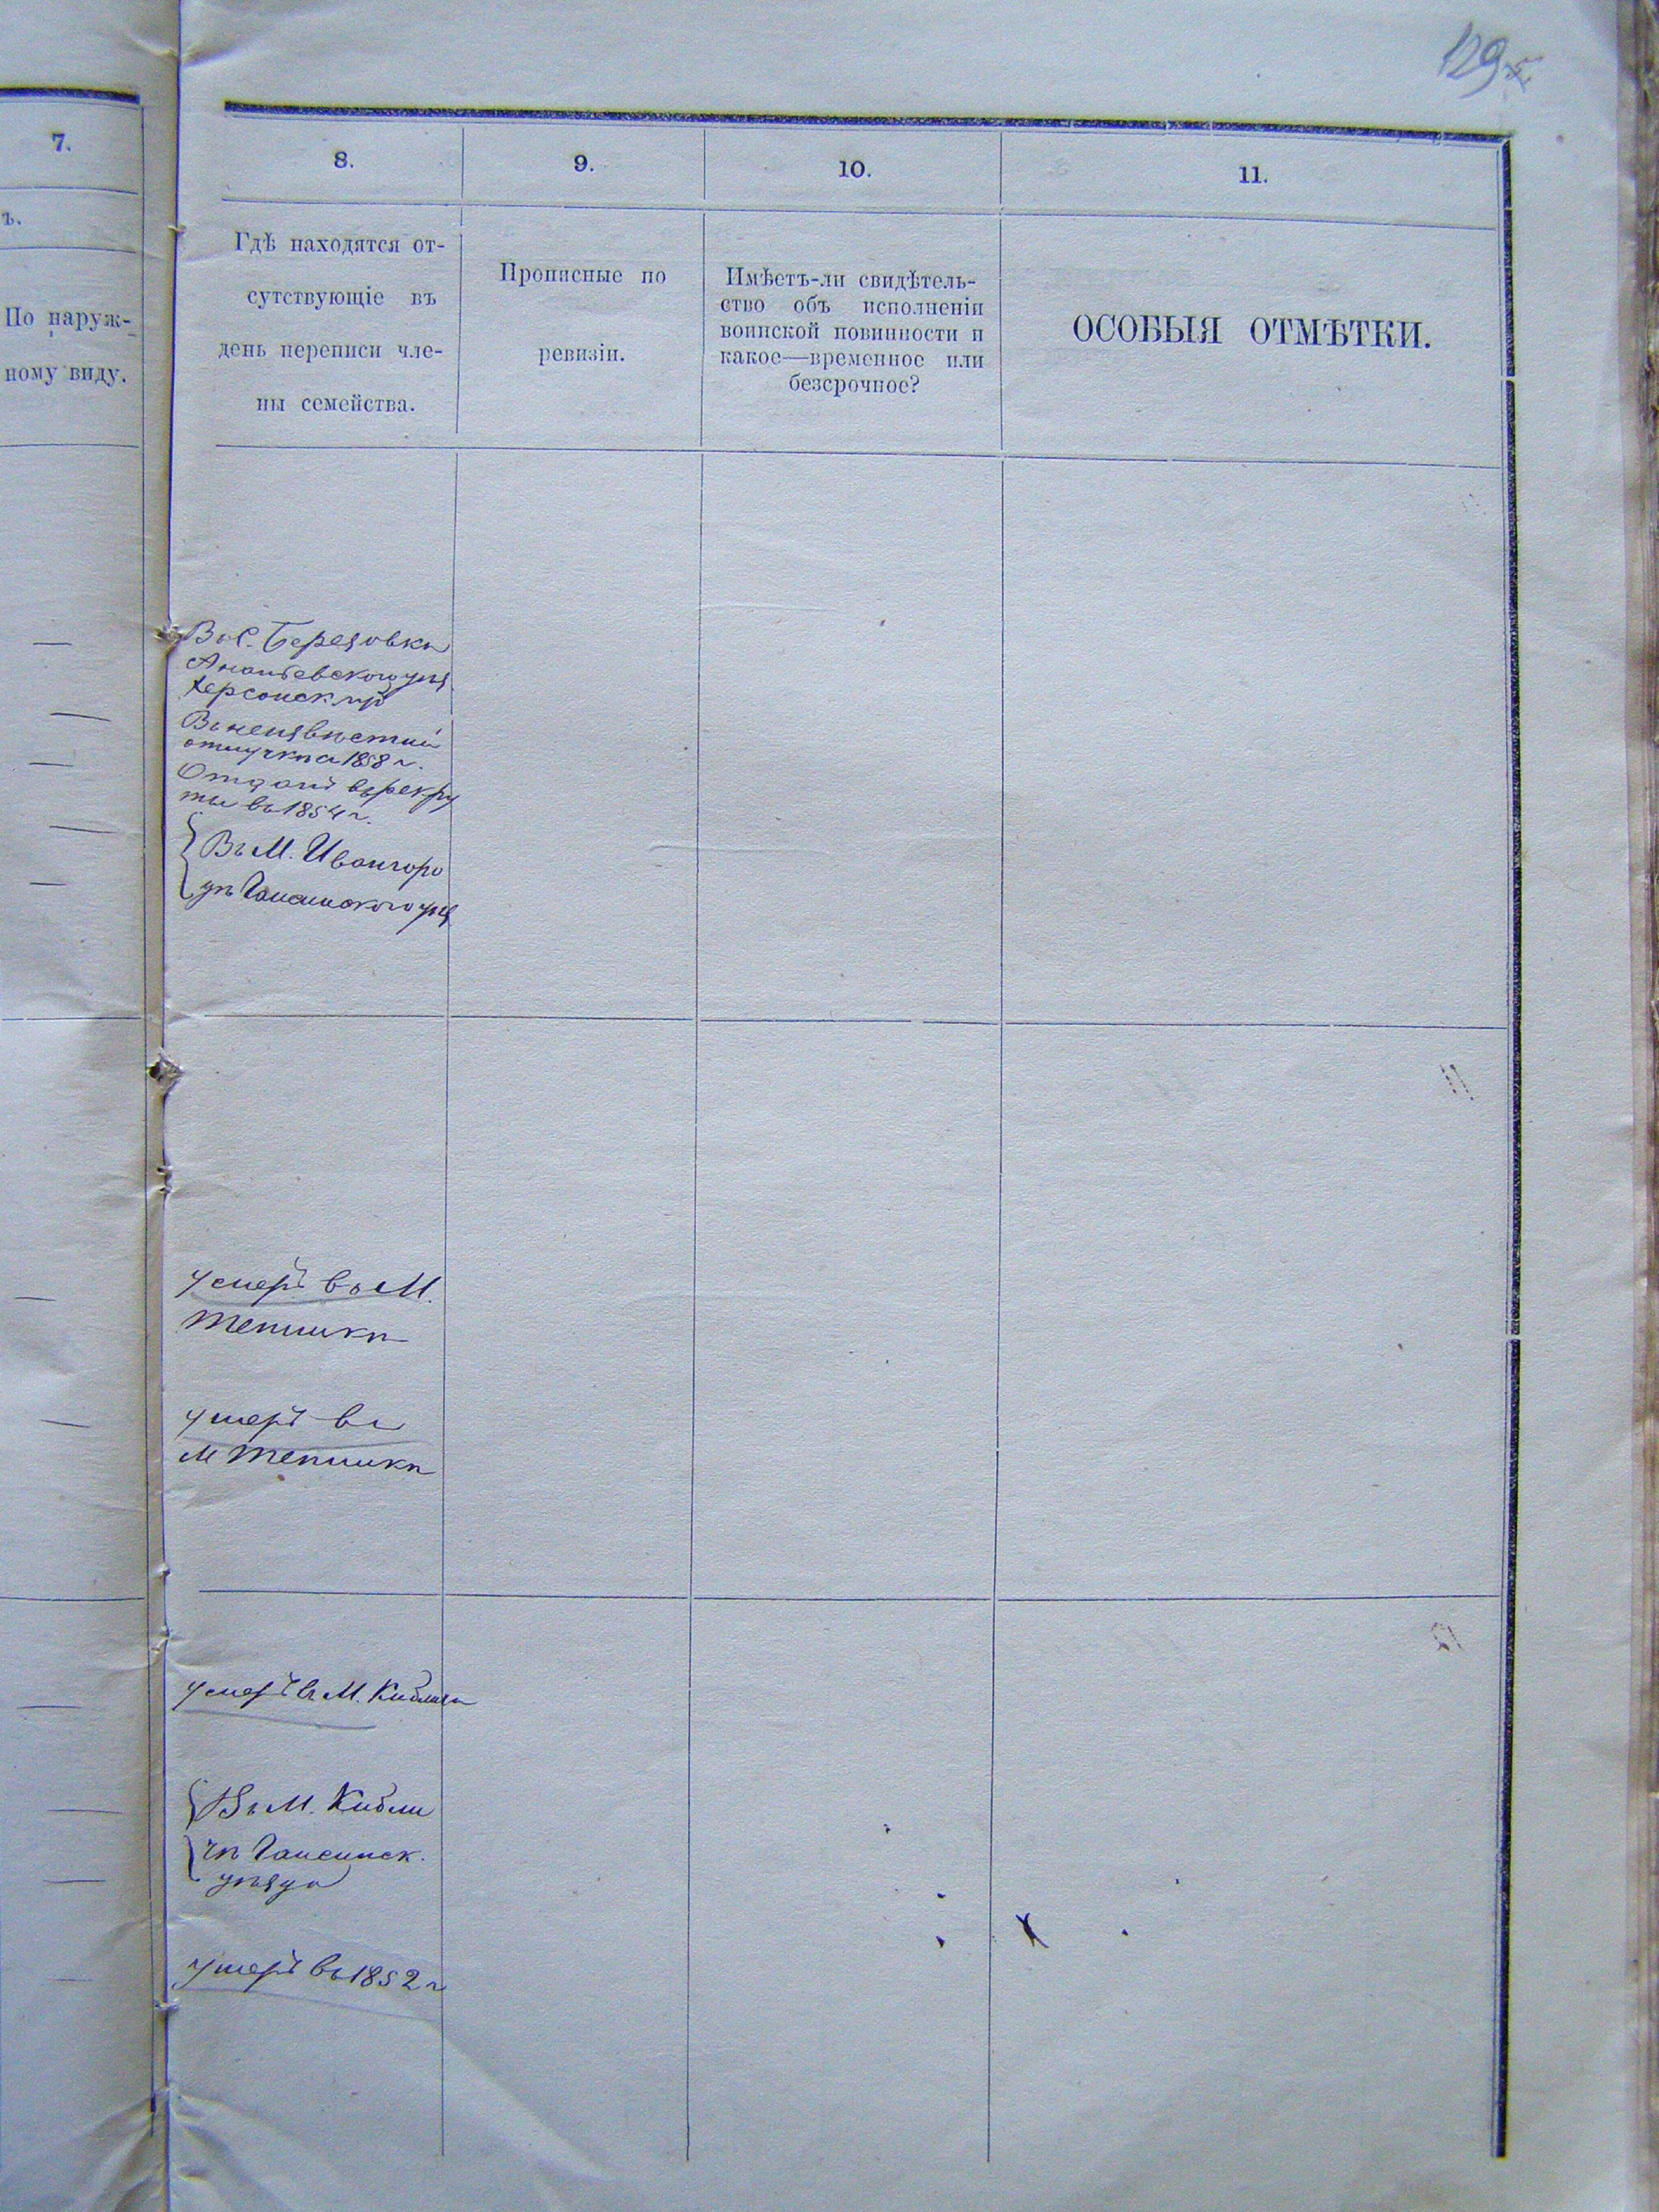 129
7.
ъ.
По наруж-
ному виду.
8.
9.
10.
11.
Гдѣ находятся от-
сутствующіе въ
день переписи чле-
ны семейства.
Прописные по
ревизіи.
Имѣетъ-ли свидѣтель-
ство объ исполненіи
воинской повинности и
какое—временное или
безсрочное?
ОСОБЫЯ ОТМѢТКИ.
Въ С. Березовкѣ
Ананьевского
Херсонск
Въ неизвѣстной
отлучкѣ с 1858 г.
Отданъ въ рекру
ты въ 1854 г.
Въ М. Ивангоро
дѣ Гайсинского
умеръ въ М.
Тепликѣ
умеръ въ
М Тепликѣ
умеръ въ М. Кибличѣ
Въ М. Кибли
чѣ Гайсинск.
уѣзда
умеръ въ 1852 г